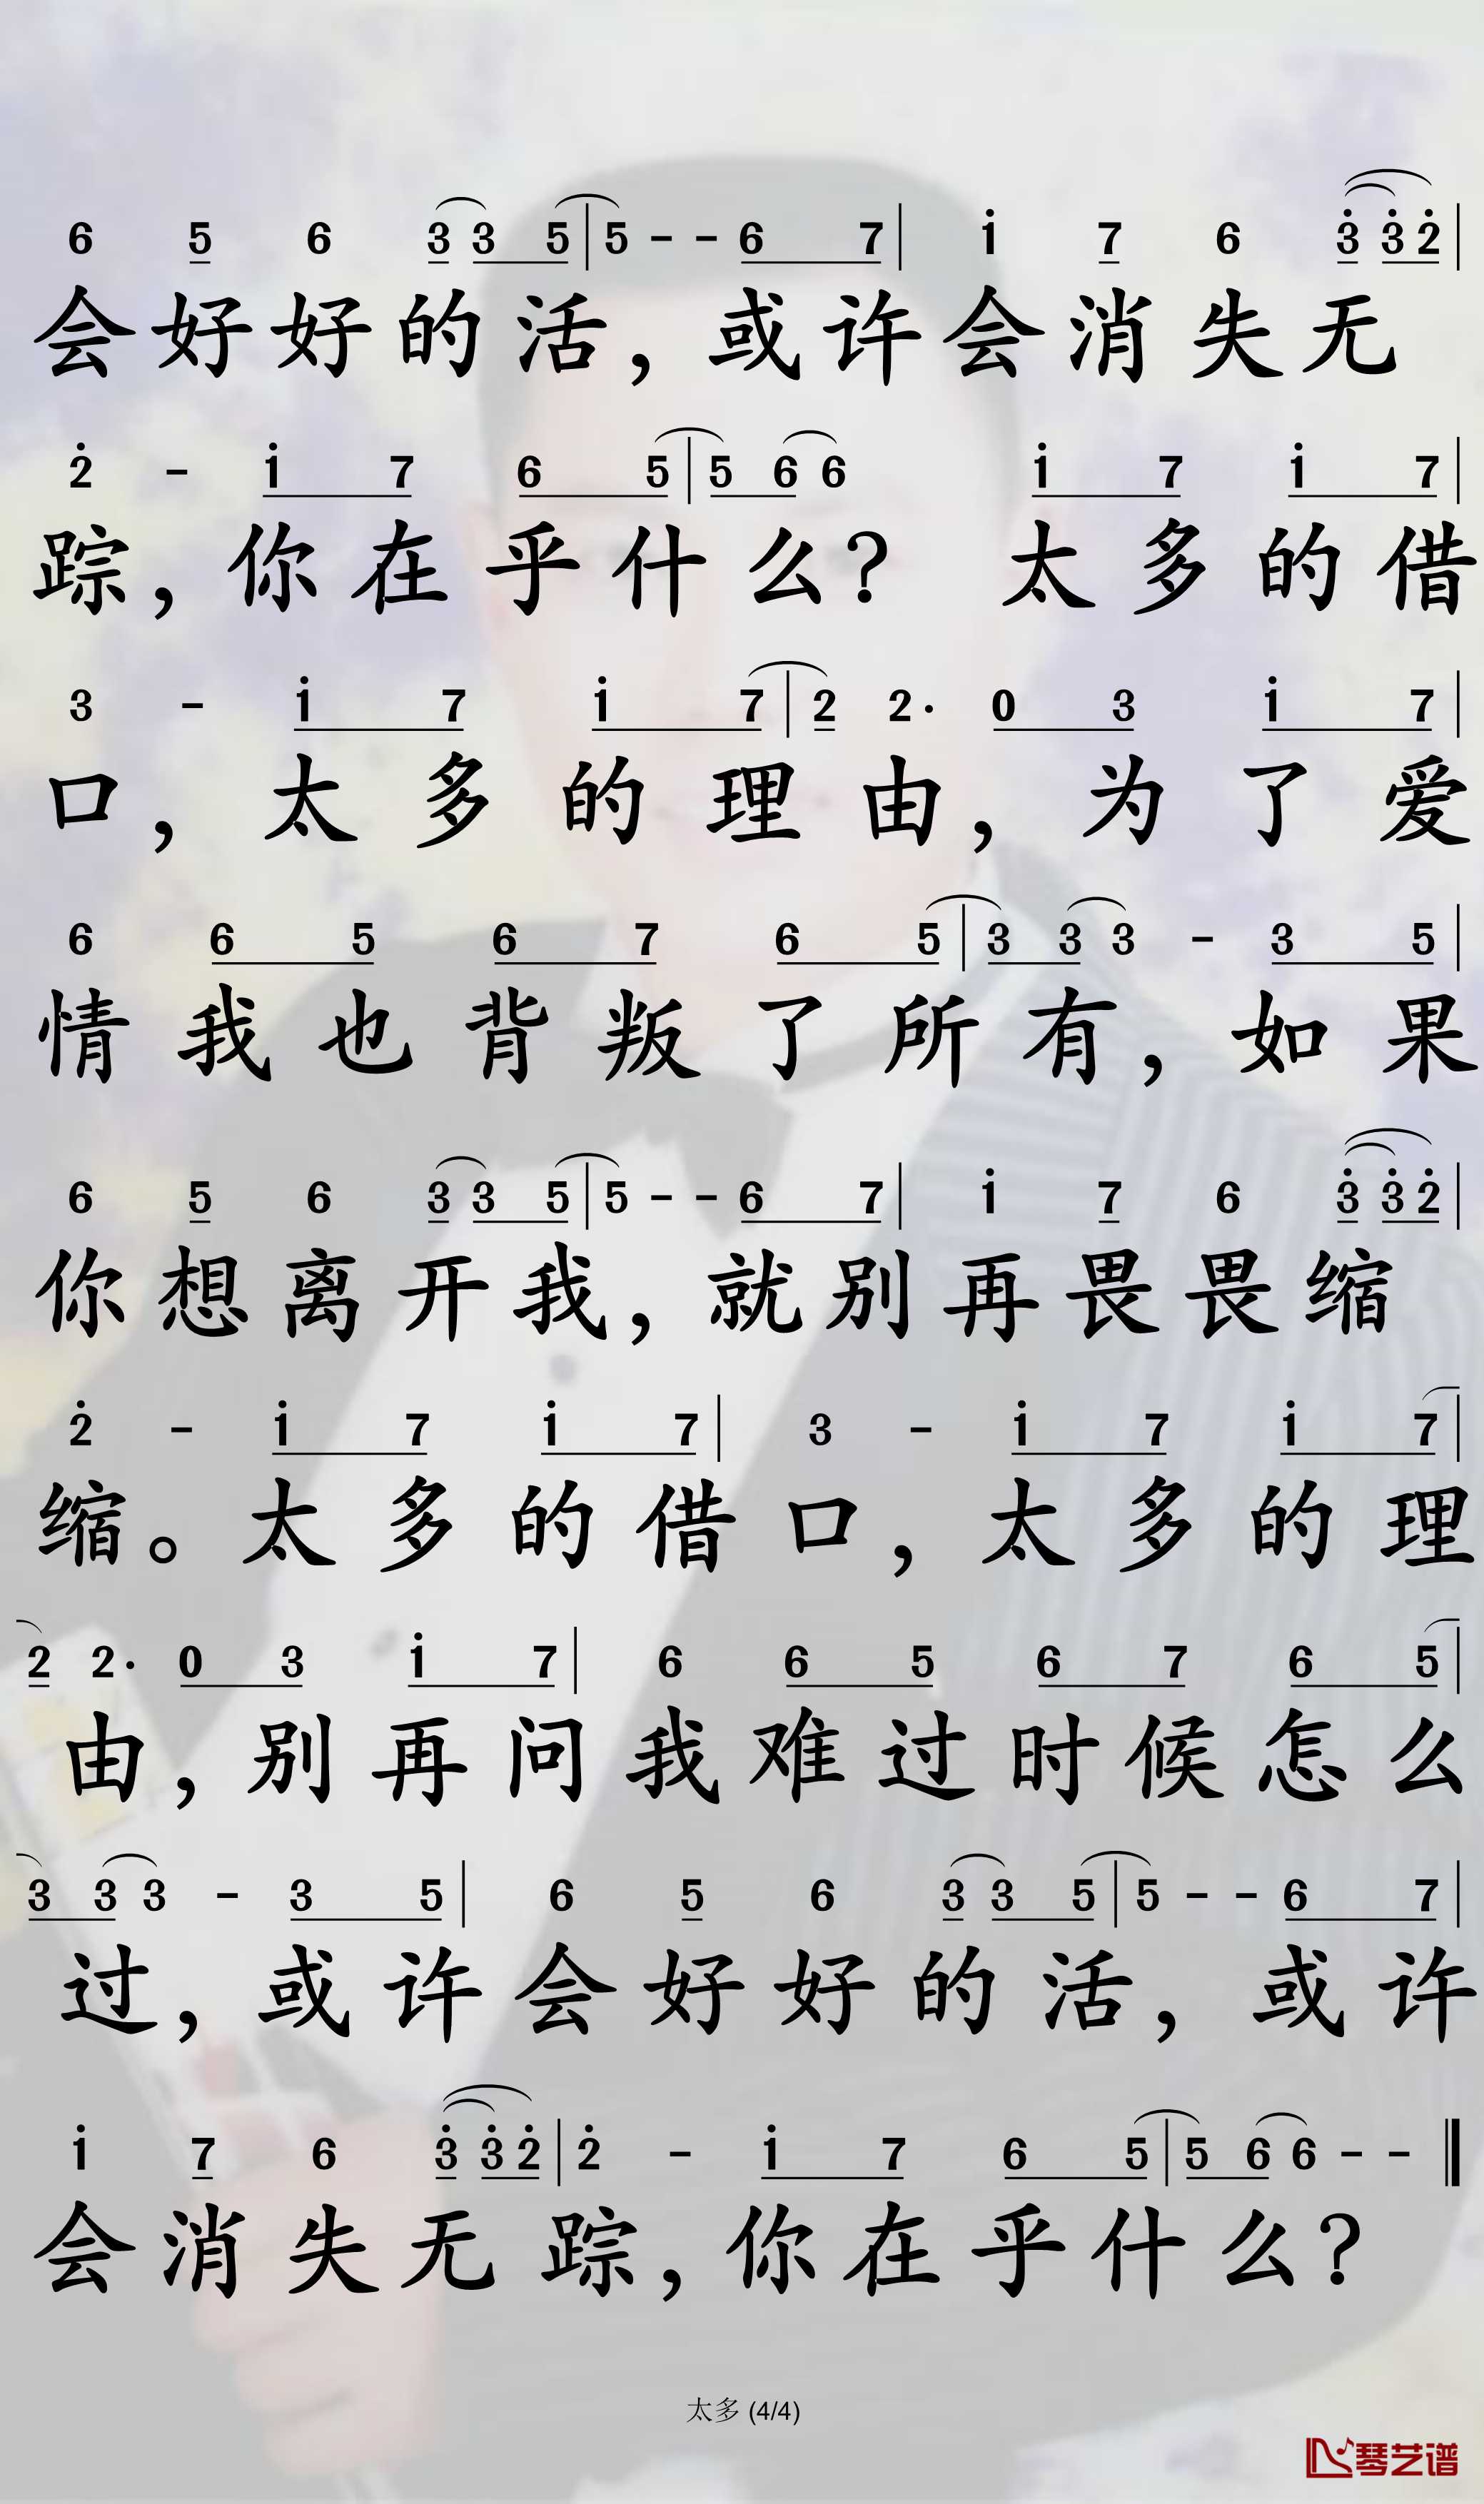 6 5 6 3 3 5 | 5 - - 6 7 | i 7 6 3̇ 3̇ 2̇ |
会好好的活，或许会消失无
2̇ - i 7 6 5 | 5 6 6 i 7 i 7 |
踪，你在乎什么？ 太多的借
3 - i 7 i 7 | 2 2· 0 3 i 7 |
口，太多的理由，为了爱
6 6 5 6 7 6 5 | 3 3 3 - 3 5 |
情我也背叛了所有，如果
6 5 6 3 3 5 | 5 - - 6 7 | i 7 6 3̇ 3̇ 2̇ |
你想离开我，就别再畏畏缩
2̇ - i 7 i 7 | 3 - i 7 i 7 |
缩。太多的借口，太多的理
2 2· 0 3 i 7 | 6 6 5 6 7 6 5 |
由，别再问我难过时候怎么
3 3 3 - 3 5 | 6 5 6 3 3 5 | 5 - - 6 7 |
过，或许会好好的活，或许
i 7 6 3̇ 3̇ 2̇ | 2̇ - i 7 6 5 | 5 6 6 - - ‖
会消失无踪，你在乎什么？
太多 (4/4)
琴艺谱